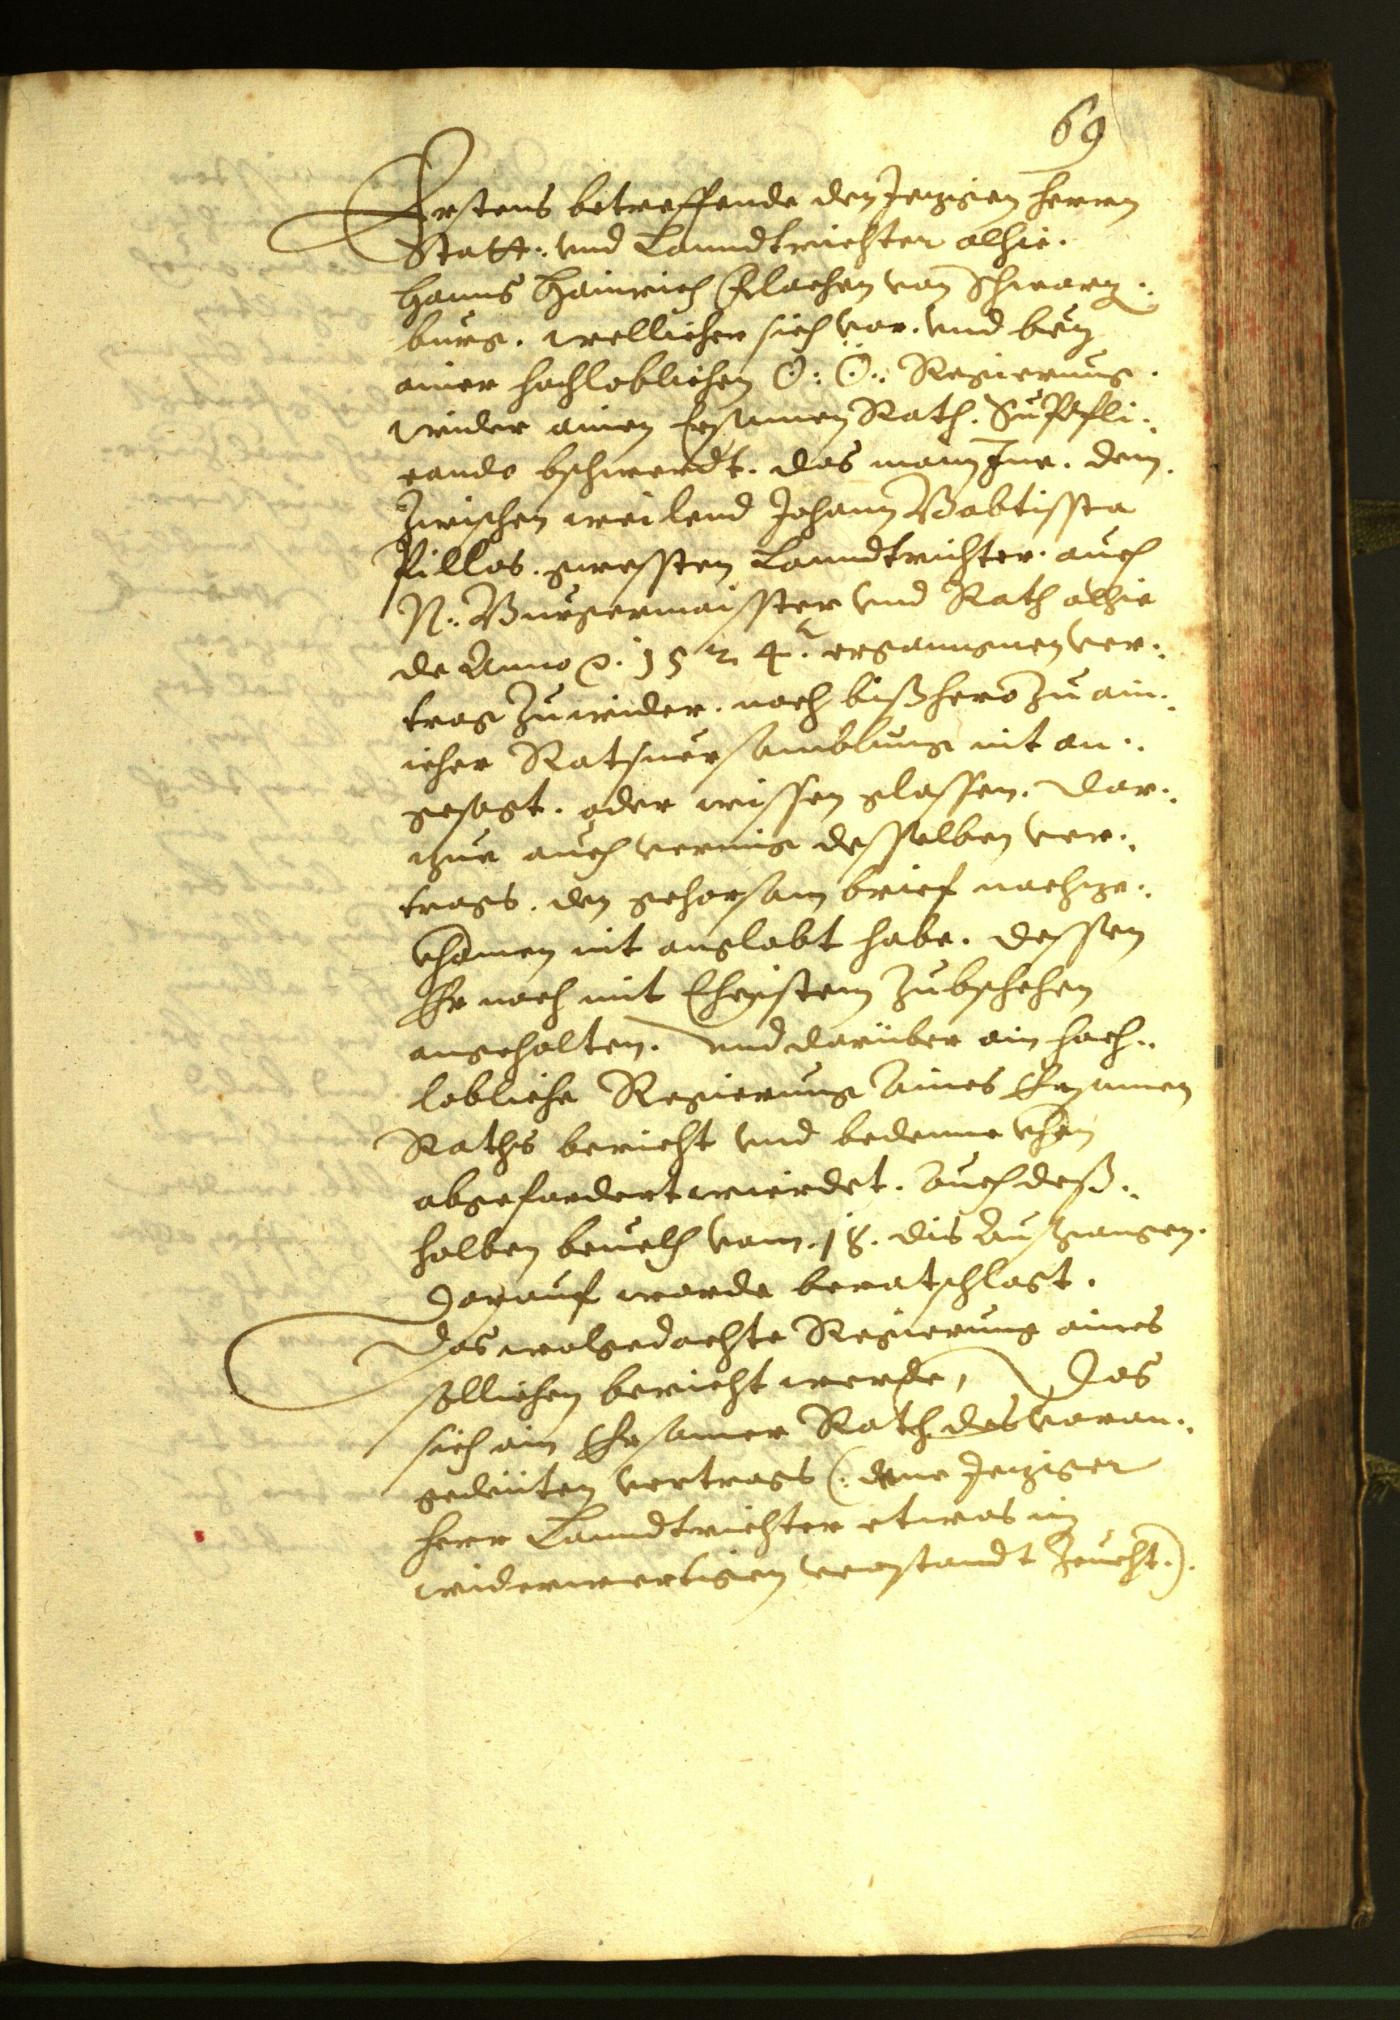 69
Erstens betreffende den Jezigen Herrn
Statt: und Lanndtrichter alhie.
Hanns Hainrich Erlacher von Schwarz:
burg. wellicher sich vor. und bey
ainer hochloblichen O: Ö: Regierung.
wider ainen Ersamen Rath. Suppli:
cando bschwerdt. das mann Ine. dem
zwischen weilend Johann Babtissta
Pillos. gwessten Lanndtrichter. auch
N: Burgermaisster und Rath alhie
de Anno 1524. ergangnen ver:
trag zuwider. noch bißhero zu ain:
icher Ratsversamblung nit an:
gesagt. oder wissen glassen. dar:
zue auch vermig desselben ver:
trags. den gehorsam brief nachze:
khomen nit anglobt habe. dessen
Er noch mit Ehistem zubschehen
angehalten. und darüber ain hoch:
lobliche Regierung Aines Ersamen
Raths bericht und bedennckhen
abgefordert wierdet. Auch deß:
halben bevelch vom. 18. dis Außgangen.
Darauf worde beratschlagt.
Das wolgedachte Regierung aines
sollichen bericht werde, Das
sich ain Ersamer Rath des voran:
gedeüten vertrags (: dene Jeziger
Herr Lanndtrichter etwas in
widerwertigen verstandt zeücht.)